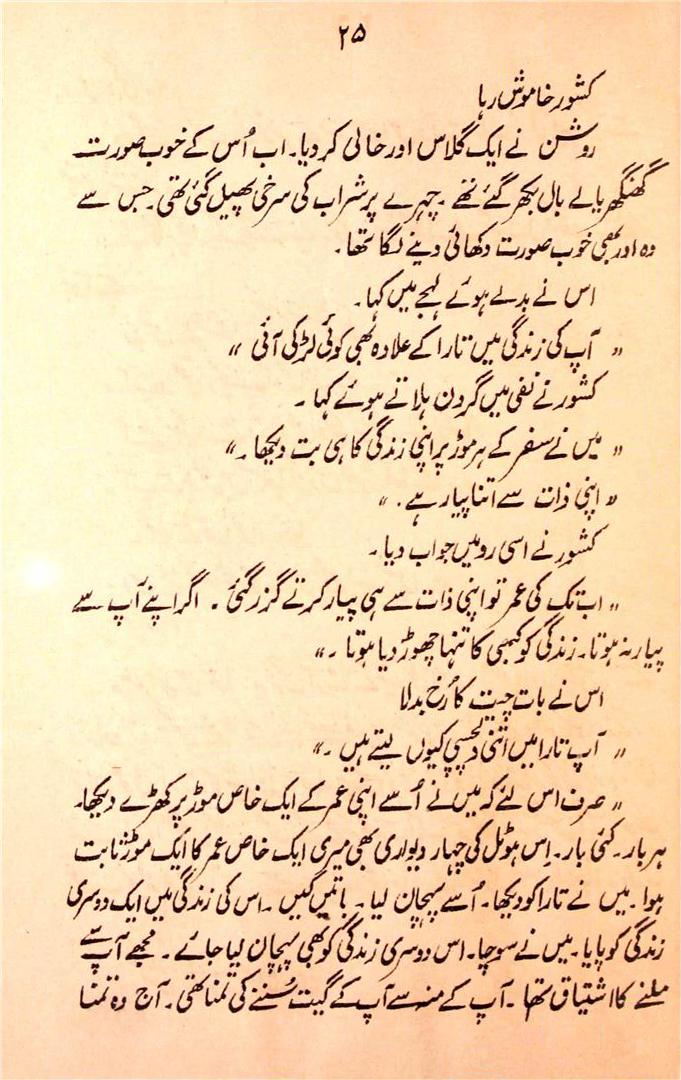 ۲۵
کشور خاموش رہا
روشن نے ایک گلاس اور خالی کر دیا۔ اب اُس کے خوب صورت
گھنگھریالے بال بکھر گئے تھے۔ چہرے پر شراب کی سرخی پھیل گئی تھی۔ جس سے
وہ اور بھی خوب صورت دکھائی دینے لگا تھا۔
اس نے بدلے ہوئے لہجے میں کہا۔
" آپ کی زندگی میں تارا کے علاوہ بھی کوئی لڑکی آئی "
کشور نے نفی میں گردن ہلاتے ہوئے کہا ۔
" میں نے سفر کے ہر موڑ پر اپنی زندگی کا ہی بت دیکھا ۔"
" اپنی ذات سے اتنا پیار ہے ۔ "
کشور نے اسی رو میں جواب دیا ۔
" اب تک کی عمر تو اپنی ذات سے ہی پیار کرتے گزر گئی ۔ اگر اپنے آپ سے
پیار نہ ہوتا۔ زندگی کو کبھی کا تنہا چھوڑ دیا ہوتا ۔"
اس نے بات چیت کا رُخ بدلا
" آپ تارا میں اتنی دلچسپی کیوں لیتے ہیں ۔"
" صرف اس لئے کہ میں نے اُسے اپنی عمر کے ایک خاص موڑ پر کھڑے دیکھا۔
ہر بار۔ کئی بار۔ اِس ہوٹل کی چہار دیواری بھی میری ایک خاص عمر کا ایک موڑ ثابت
ہوا۔ میں نے تارا کو دیکھا۔ اُسے پہچان لیا۔ باتیں کیں ۔ اس کی زندگی میں ایک دوسری
زندگی کو پایا۔ میں نے سوچا۔ اس دوسری زندگی کو بھی پہچان لیا جائے ۔ مجھے آپ سے
ملنے کا اشتیاق تھا ۔ آپ کے منہ سے آپ کے گیت سُننے کی تمنا تھی۔ آج وہ تمنا